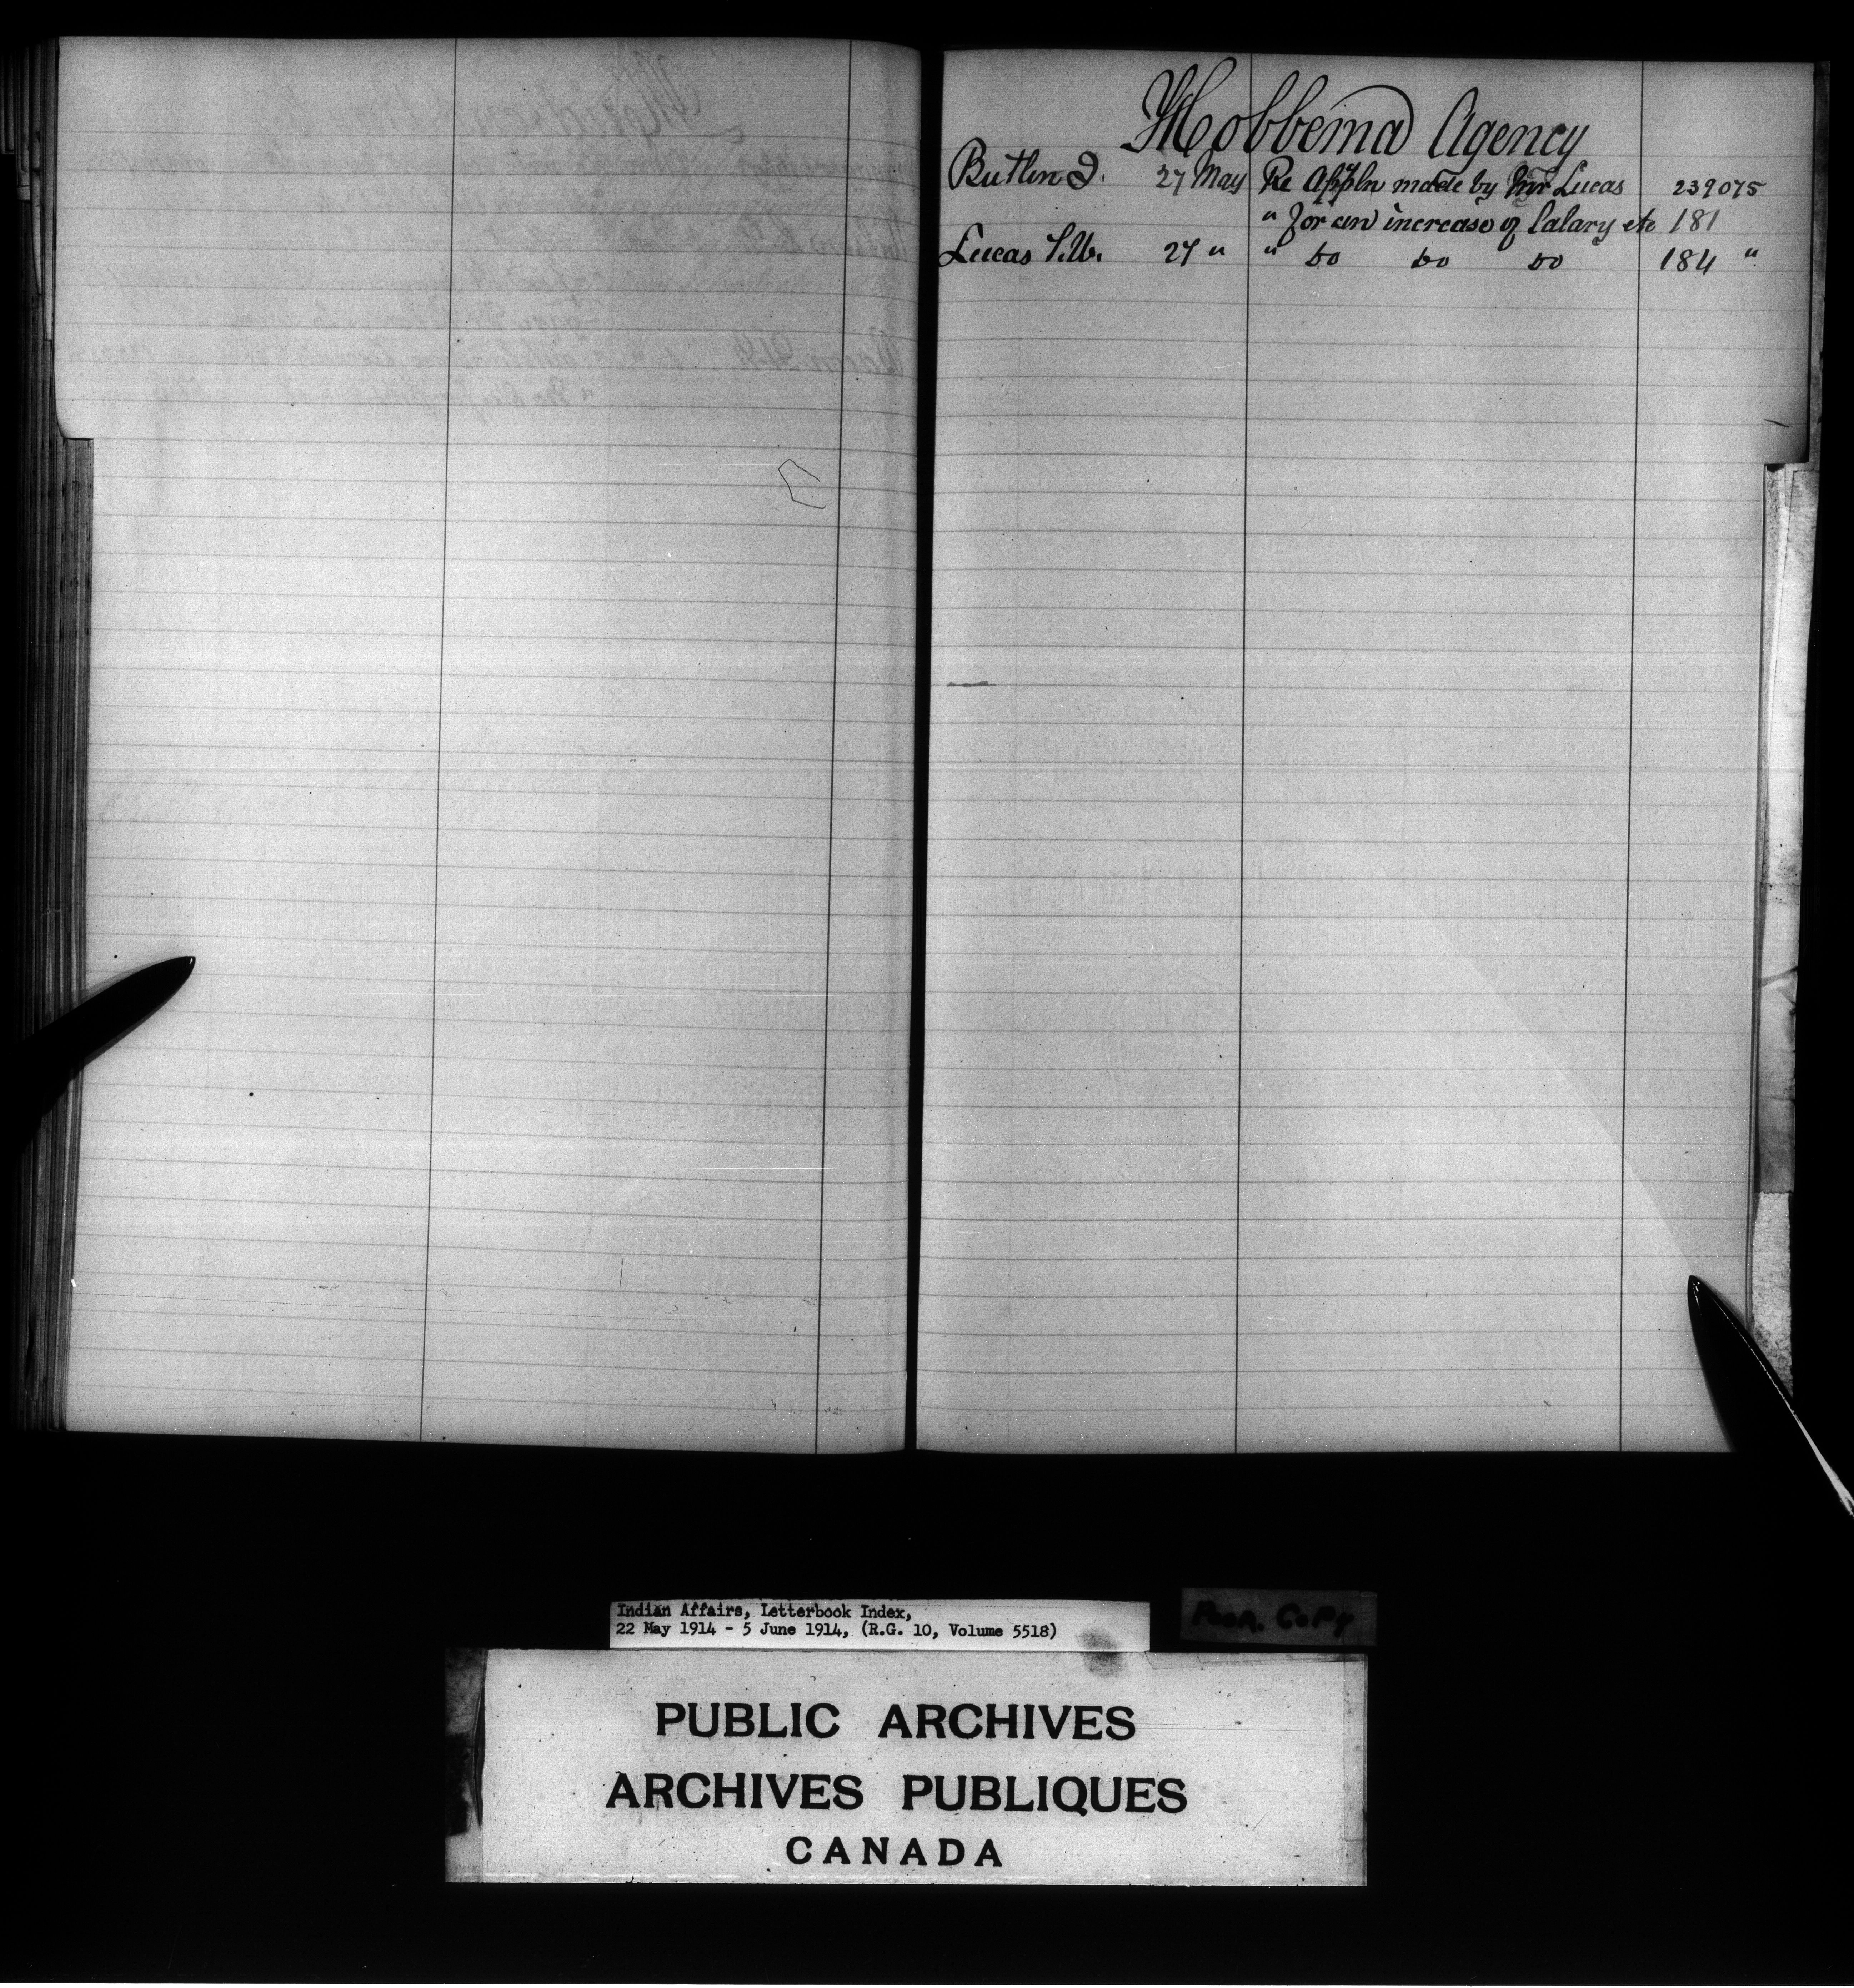 Hobbema Agency
Butlin D. 27 May Re Appln made by Mr Lucas 239075
" for an increase of Salary etc 181
Lucas S.W. 27 " " Do Do Do 184 "
Indian Affairs, Letterbook Index,
22 May 1914 - 5 June 1914, (R.G. 10, Volume 5518)
Poor Copy
PUBLIC ARCHIVES
ARCHIVES PUBLIQUES
CANADA